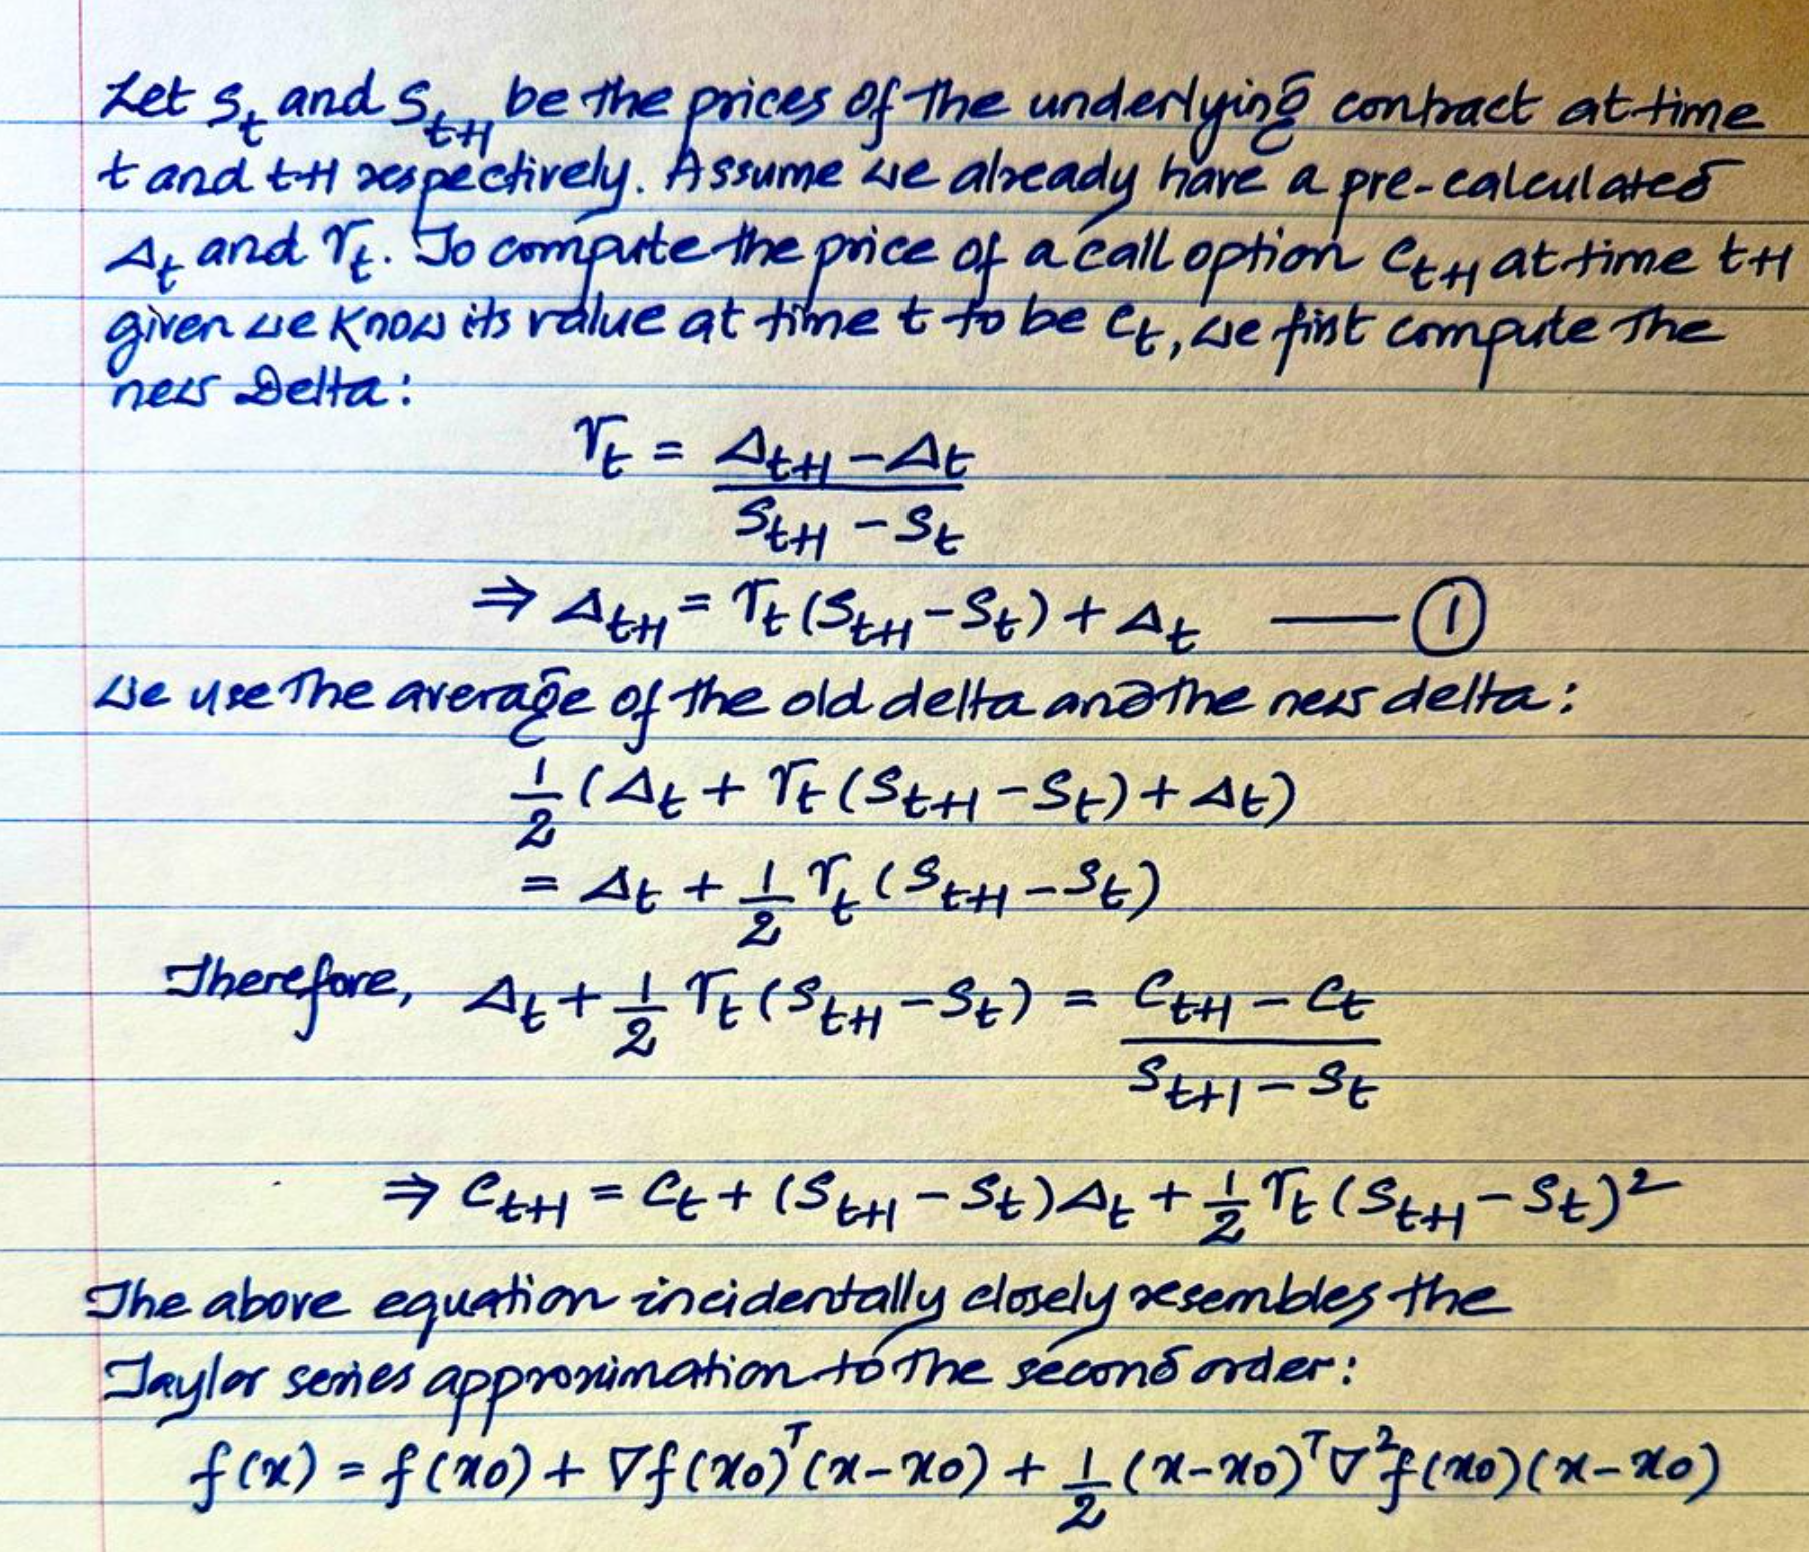 Let S_t and S_{t+1} be the prices of the underlying contract at time
t and t+1 respectively. Assume we already have a pre-calculated
Δ_t and Γ_t. To compute the price of a call option C_{t+1} at time t+1
given we know its value at time t to be C_t, we first compute the
new Delta:
Γ_t = (Δ_{t+1} - Δ_t) / (S_{t+1} - S_t)
⇒ Δ_{t+1} = Γ_t (S_{t+1} - S_t) + Δ_t —— ①
We use the average of the old delta and the new delta:
1/2 (Δ_t + Γ_t (S_{t+1} - S_t) + Δ_t)
= Δ_t + 1/2 Γ_t (S_{t+1} - S_t)
Therefore, Δ_t + 1/2 Γ_t (S_{t+1} - S_t) = (C_{t+1} - C_t) / (S_{t+1} - S_t)
⇒ C_{t+1} = C_t + (S_{t+1} - S_t) Δ_t + 1/2 Γ_t (S_{t+1} - S_t)^2
The above equation incidentally closely resembles the
Taylor series approximation to the second order:
f(x) = f(x0) + ∇f(x0)^T (x-x0) + 1/2 (x-x0)^T ∇^2 f(x0)(x-x0)